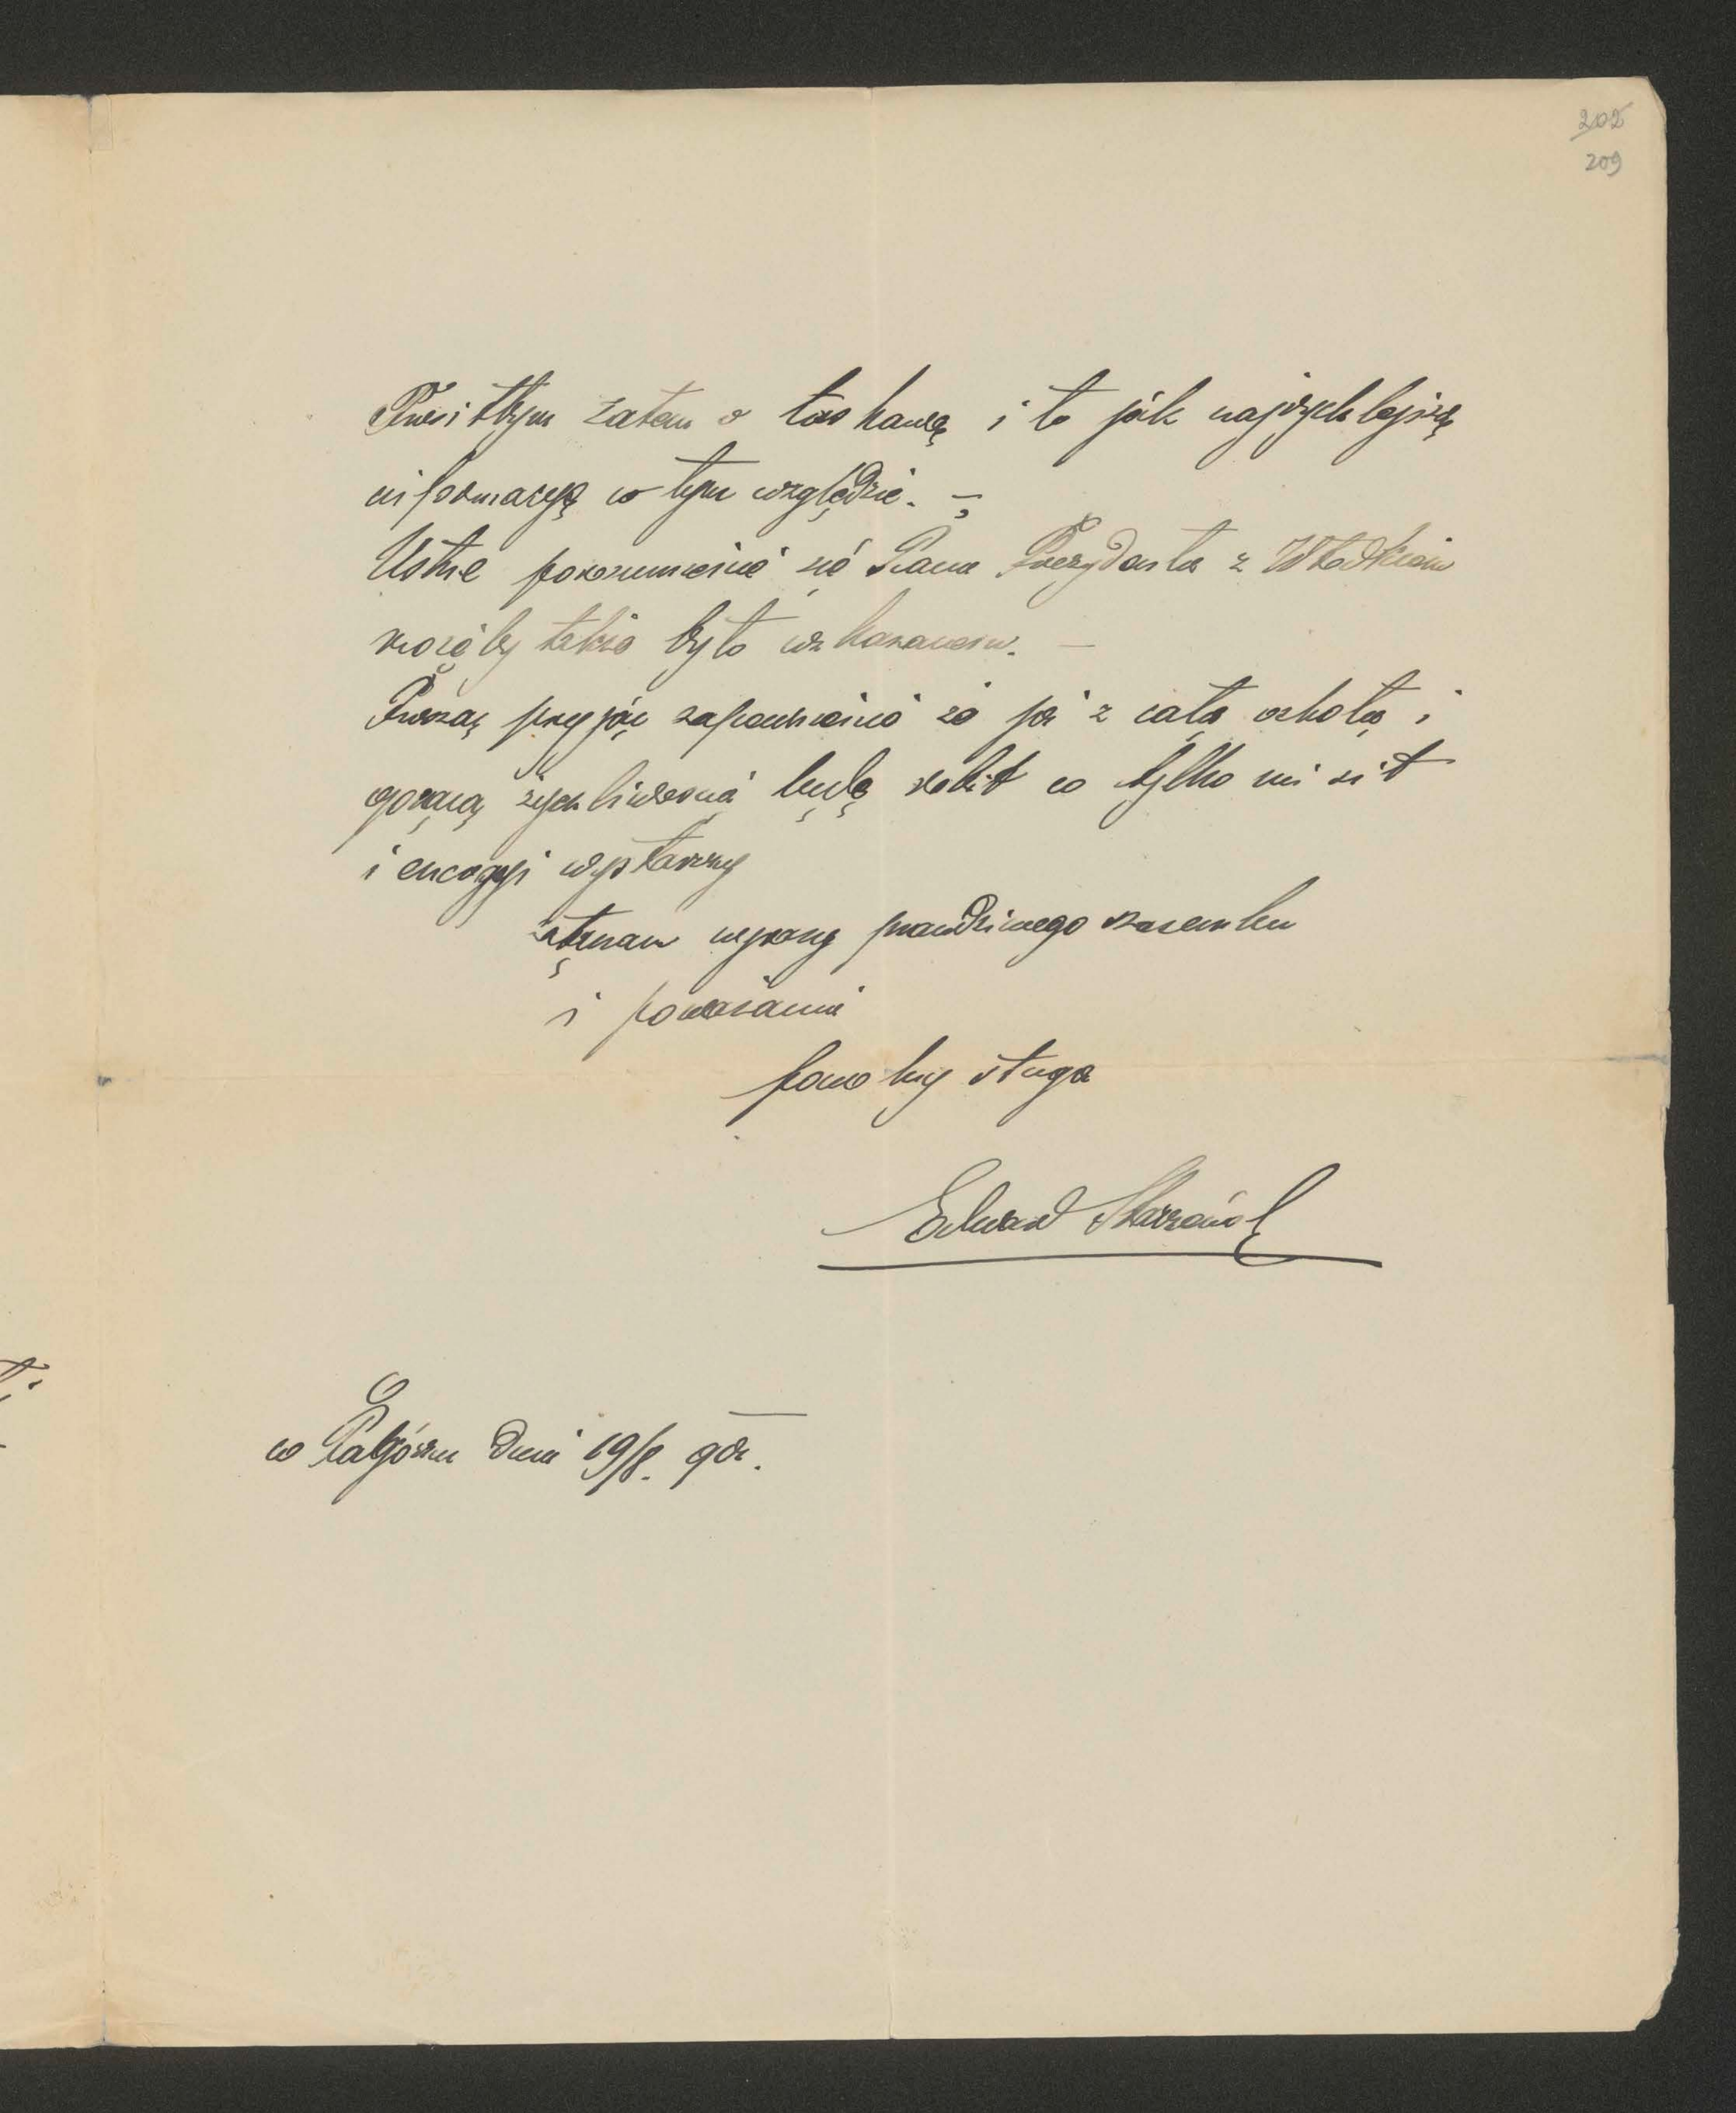 202
209
Prosiłbym zatem o łaskawą i to jak najrychlejszą
informacyę w tym względzie. –
Ustne porozumienie się Pana Prezydenta z Władkiem
możeby także było wskazanem. –
Proszę przyjąć zapewnienie że ja z całą ochotą i
gorącą życzliwością będę robił co tylko mi sił
i energyi wystarczy
Łączam wyrazy prawdziwego szacunku
i poważania
powolny sługa
Edward
w dnia 19/8.